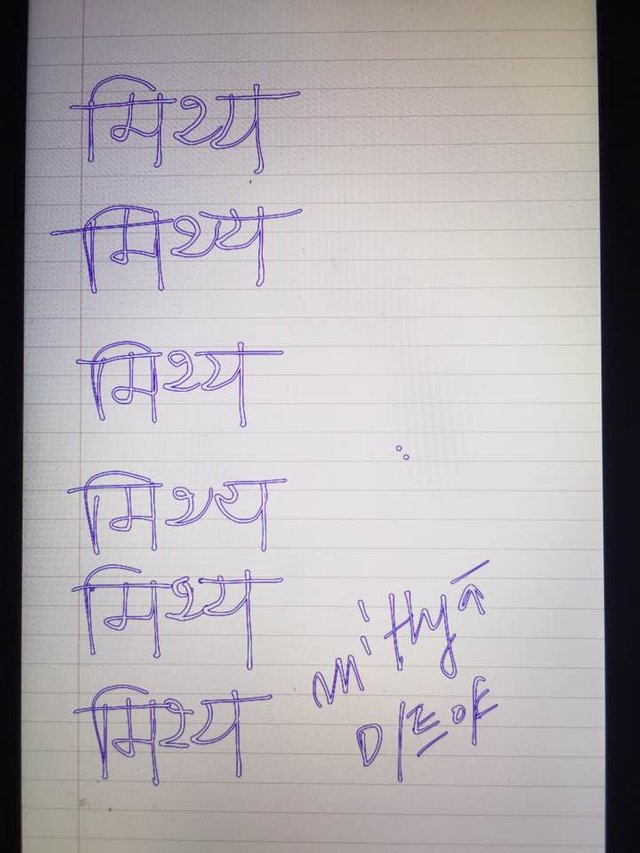 मिथ्य
मिथ्य
मिथ्य
मिथ्य
मिथ्य
मिथ्य
mithyā
미트야